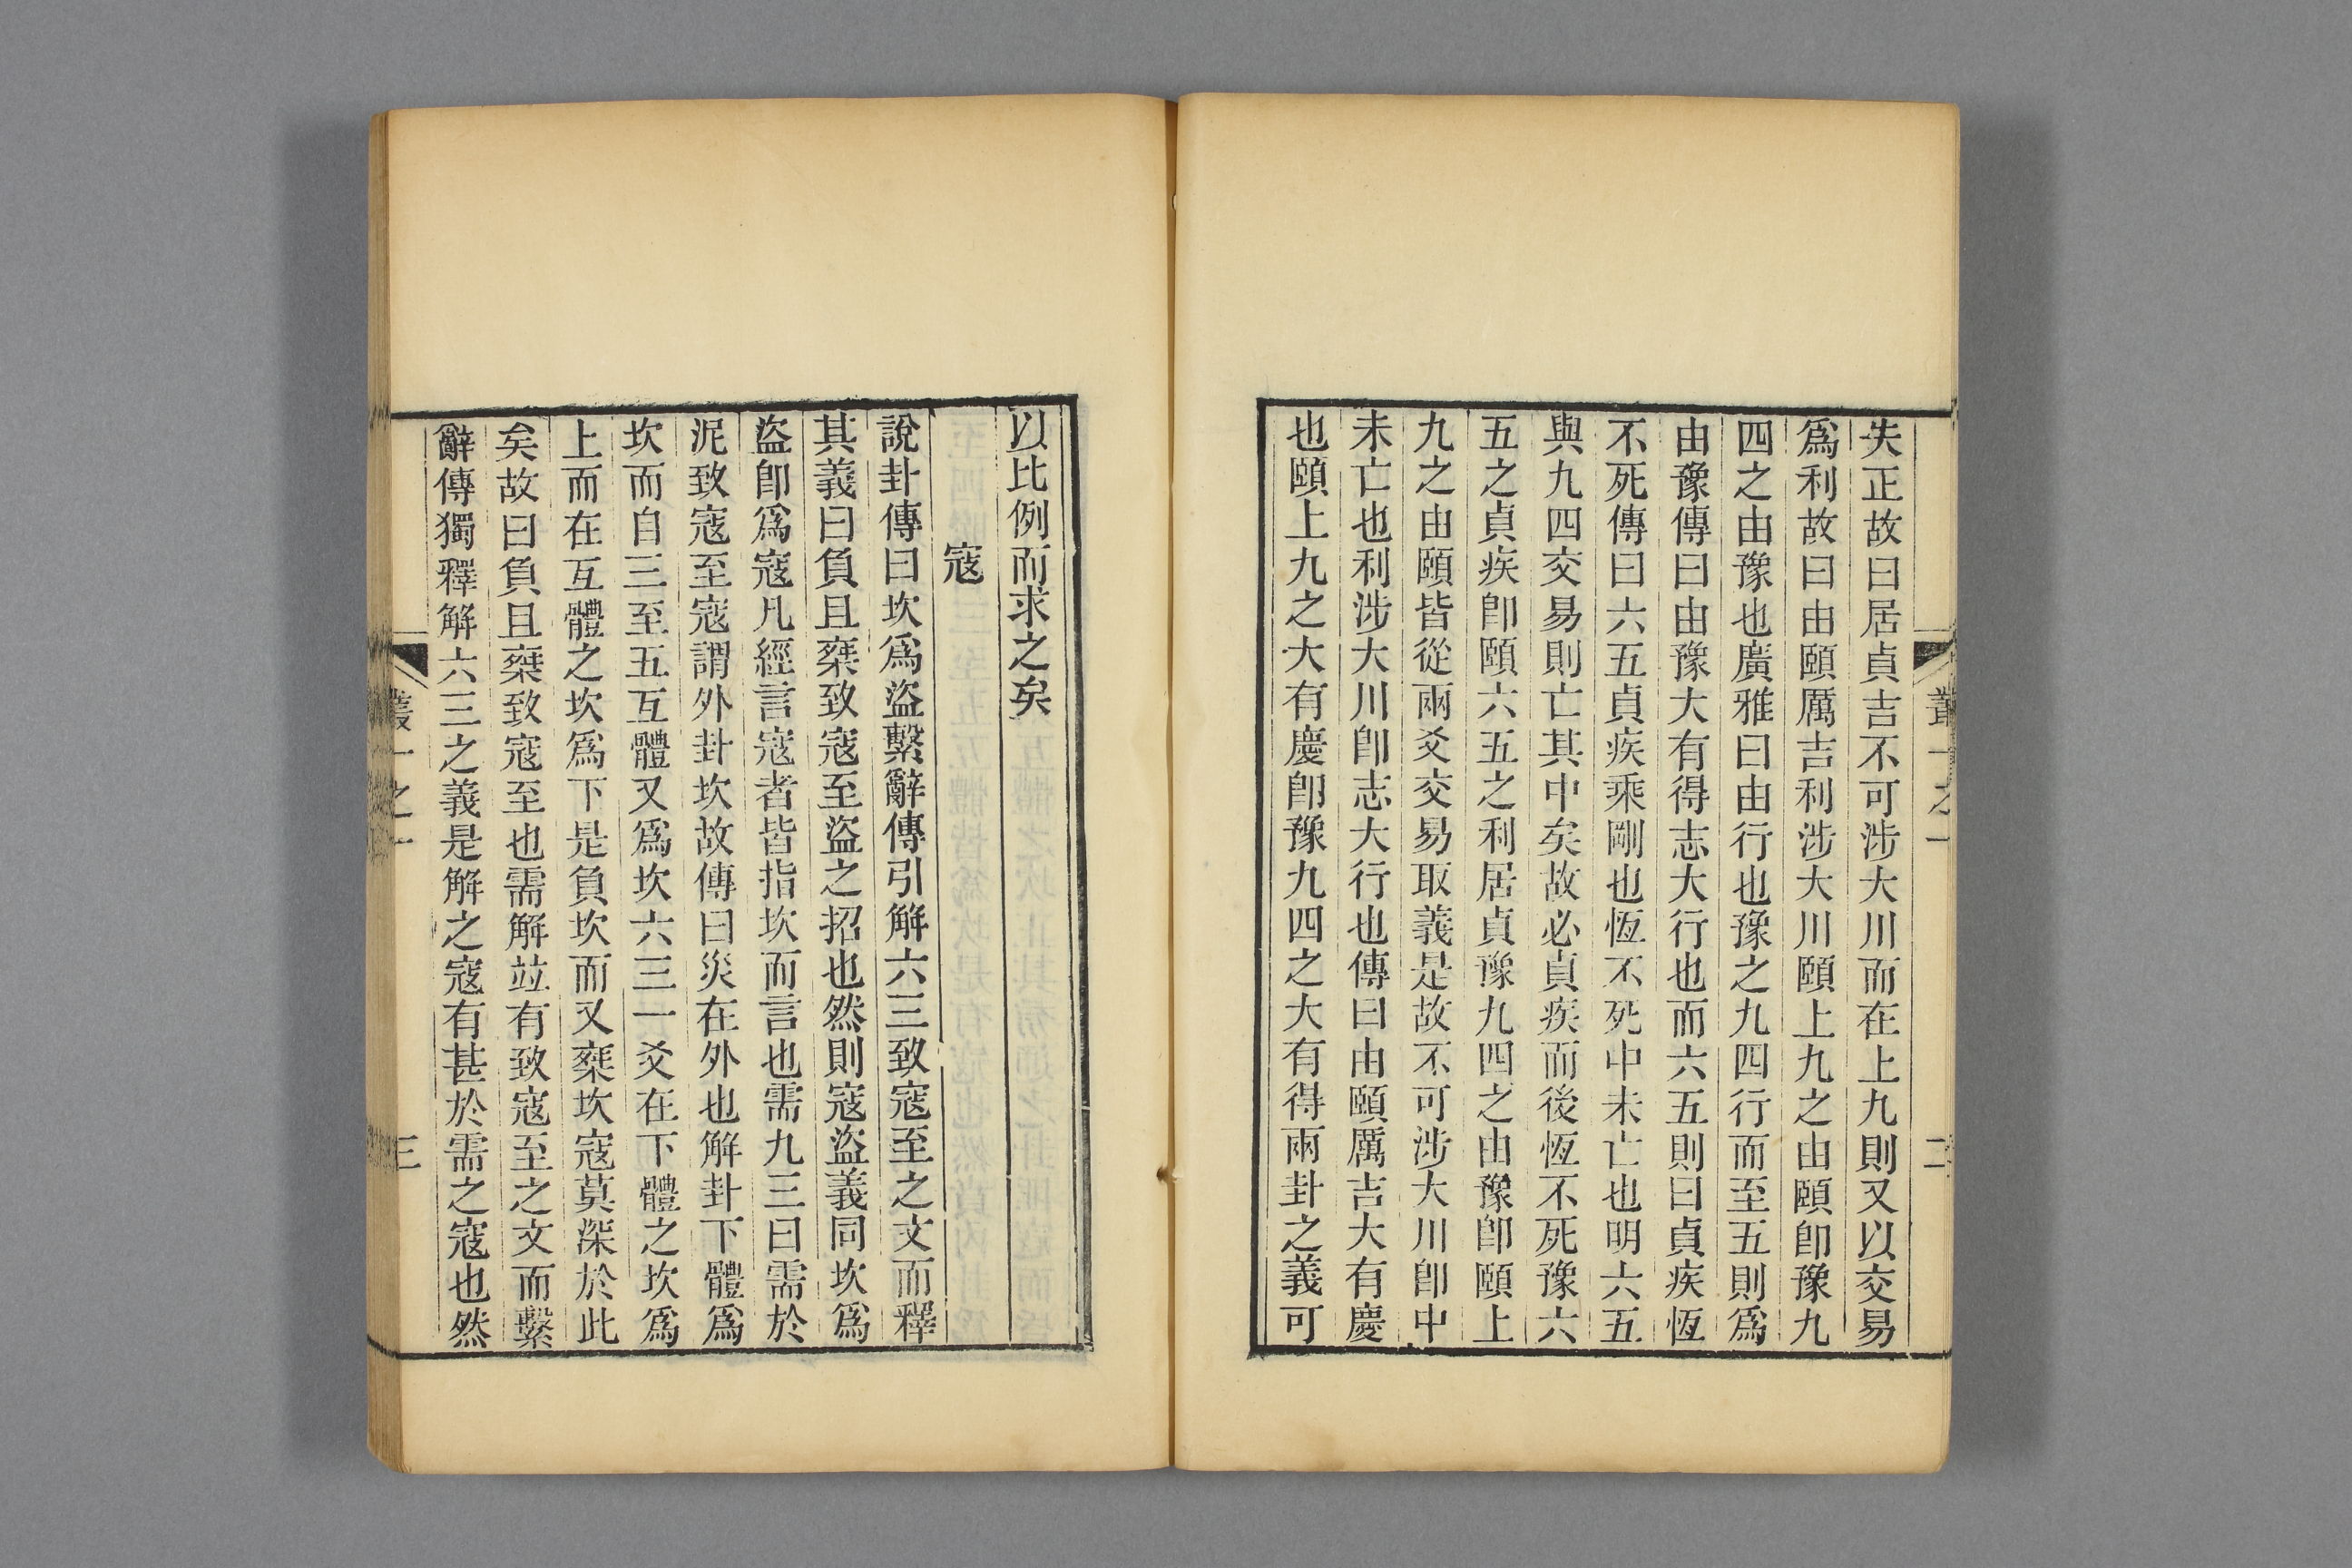 失正故曰居貞吉不可涉大川而在上九則又以交易
爲利故曰由頤厲吉利涉大川頤上九之由頤卽豫九
四之由豫也廣雅曰由行也豫之九四行而至五則爲
由豫傳曰由豫大有得志大行也而六五則曰貞疾恆
不死傳曰六五貞疾乘剛也恆不死中未亡也明六五
與九四交易則亡其中矣故必貞疾而後恆不死豫六
五之貞疾卽頤六五之利居貞豫九四之由豫卽頤上
九之由頤皆從兩爻交易取義是故不可涉大川卽中
未亡也利涉大川卽志大行也傳曰由頤厲吉大有慶
也頤上九之大有慶卽豫九四之大有得兩卦之義可
以比例而求之矣
寇
說卦傳曰坎爲盜繫辭傳引解六三致寇至之文而釋
其義曰負且椉致寇至盜之招也然則寇盜義同坎爲
盜卽爲寇凡經言寇者皆指坎而言也需九三曰需於
泥致寇至寇謂外卦坎故傳曰災在外也解卦下體爲
坎而自三至五互體又爲坎六三一爻在下體之坎爲
上而在互體之坎爲下是負坎而又椉坎寇莫深於此
矣故曰負且椉致寇至也需解竝有致寇至之文而繫
辭傳獨釋解六三之義是解之寇有甚於需之寇也然
叢一之一
二
叢一之一
三